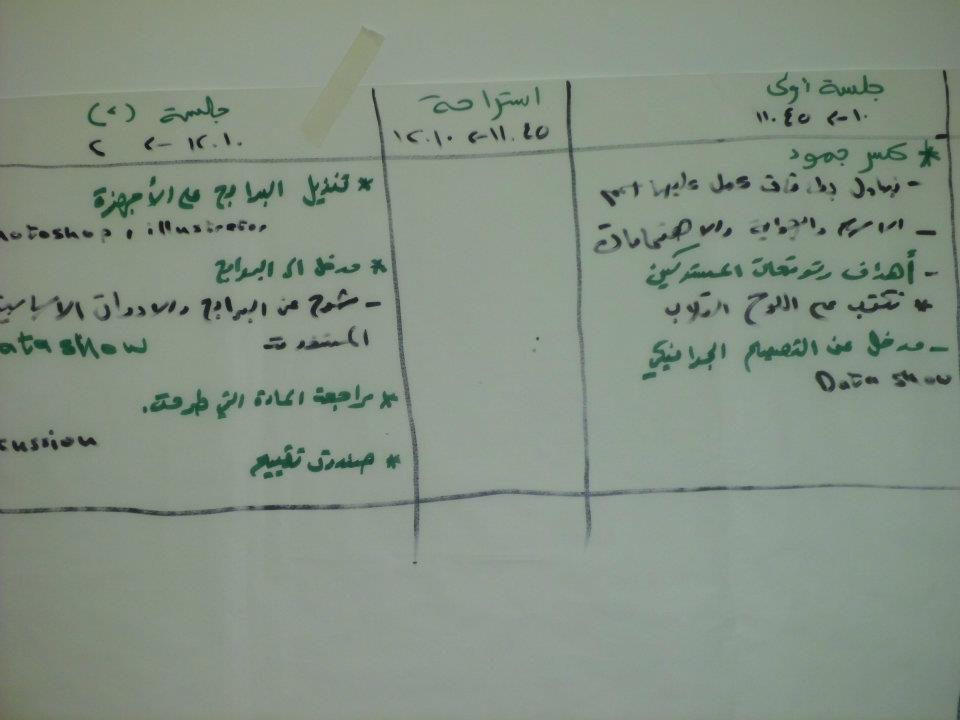 جلسة أولى
١٠ -> ١١.٤٥
* كسر جمود
- تبادل بطاقات كمل عليها اسم
- الاسم والهواية والاهتمامات
- أهداف وتوقعات المشتركين
* تكتب على اللوح القلاب
- مدخل عن التصميم الجرافيكي
Data show
استراحة
١١.٤٥ -> ١٢.١٠
جلسة (٢)
١٢.١٠ -> ٢
* تنزيل البرامج على الأجهزة
hotoshop, illustrator
* مدخل الى البرامج
- شرح عن البرامج والادوات الأساسية
ata show
* مراجعة المادة التي طرحت.
cussion
* صندوق تقييم